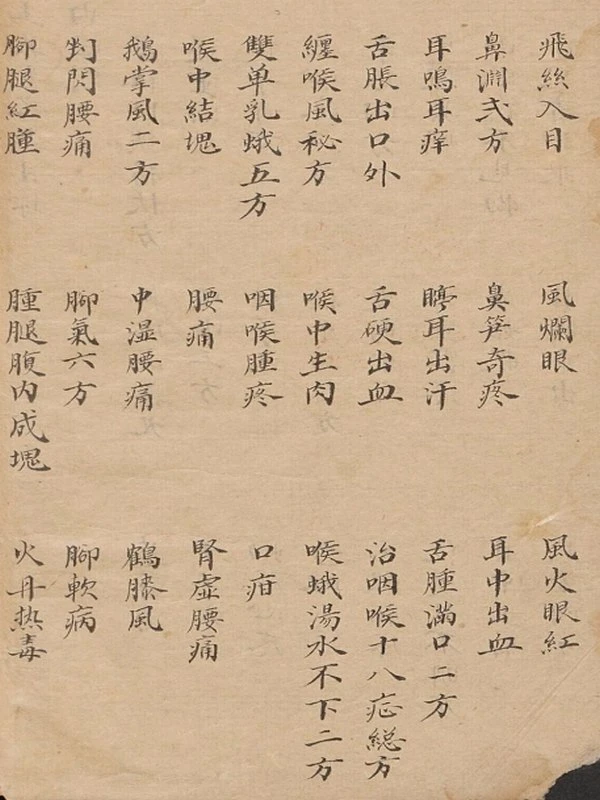 飛絲入目 風爛眼 風火眼紅
鼻淵弍方 鼻笋奇疼 耳中出血
耳鳴耳痒 聤耳出汗 舌腫滿口二方
舌脹出口外 舌硬出血 治咽喉十八症総方
纏喉風秘方 喉中生肉 喉蛾湯水不下二方
雙单乳蛾五方 咽喉腫疼 口疳
喉中結塊 腰痛 腎虛腰痛
鵝掌風二方 中湿腰痛 鶴膝風
閃腰痛 腳氣六方 腳軟病
腳腿紅腫 腫腿腹内成塊 火丹热毒